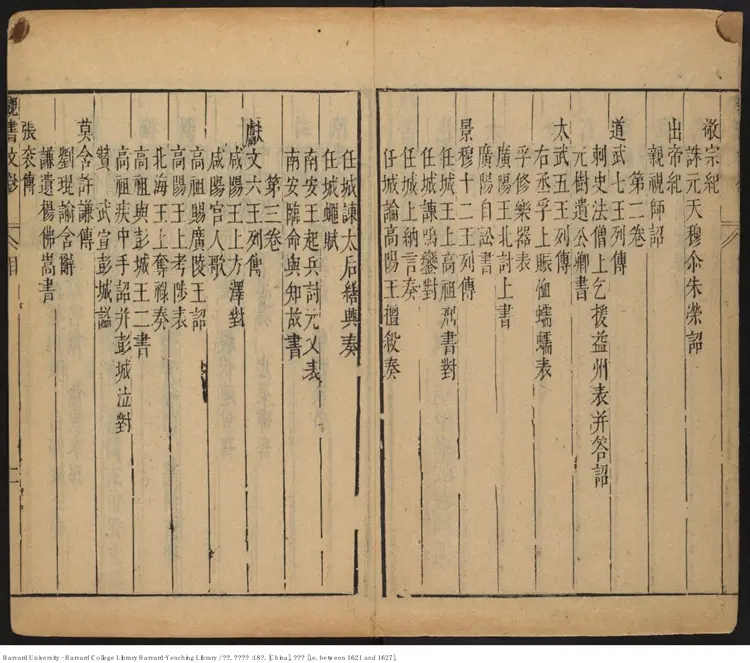 敬宗紀
誅元天穆尒朱榮詔
出帝紀
親視師詔
第二卷
道武七王列傳
刺史法僧上乞援益州表并答詔
元樹遺公卿書
太武五王列傳
右丞孚上賑恤蠕蠕表
孚修樂器表
廣陽王北討上書
廣陽自訟書
景穆十二王列傳
任城王上高祖刑書對
任城諫鳴鑾對
任城上納言奏
任城論高陽王擅殺奏
任城諫太后繕興奏
任城蠅賦
南安王起兵討元乂表
南安臨命與知故書
第三卷
獻文六王列傳
咸陽王上方澤對
咸陽宮人歌
高祖賜廣陵王詔
高陽王上考陟表
北海王上奪祿奏
高祖與彭城王二書
高祖疾中手詔并彭城泣對
贊 武宣彭城謚
莫含許謙傳
劉琨諭含辭
謙遺楊佛嵩書
張袞傳
魏書文鈔
目
二
Harvard University - Harvard College Library Harvard-Yenching Library / ??. ???? :18?. [China], ??? [i.e. between 1621 and 1627].